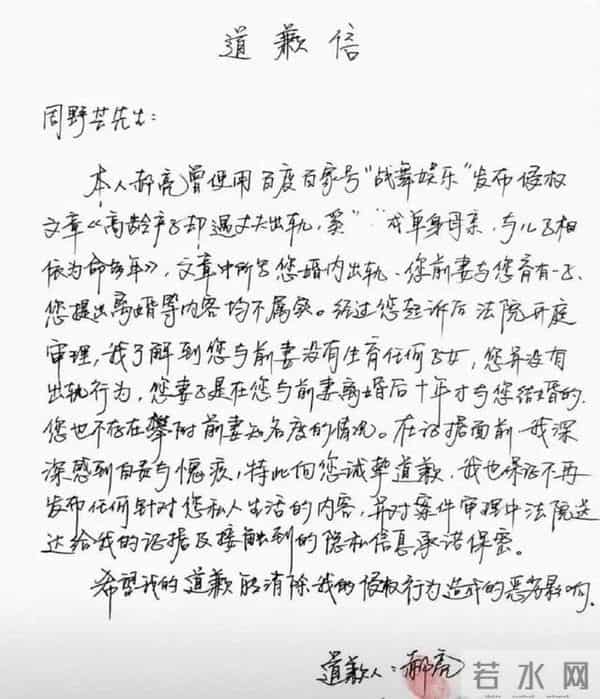 道歉信
周野芒先生:
本人郝亮曾使用百度百家号"战舞娱乐"发布侵权
文章《高龄产子却遇丈夫出轨,奚 成单身母亲,与儿子相
依为命多年》,文章中所写您婚内出轨、您前妻与您育有一子、
您提出离婚等内容均不属实。经过您起诉后法院开庭
审理,我了解到您与前妻没有生育任何子女,您并没有
出轨行为,您妻子是在您与前妻离婚后十年才与您结婚的.
您也不存在攀附前妻知名度的情况。在证据面前我深
深感到自责与愧疚,特此向您诚挚道歉,我也保证不再
发布任何针对您私人生活的内容,并对案件审理中法院送
达给我的证据及接触到的隐私信息承诺保密。
希望我的道歉能消除我的侵权行为造成的恶劣影响.
道歉人:郝亮
若水网